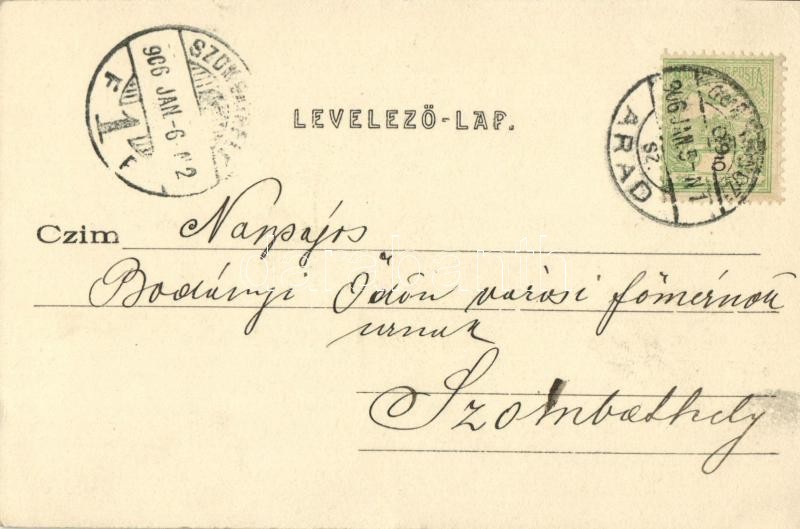 LEVELEZŐ-LAP.
906 JAN -6
F 1
906 JAN -5 N1
ARAD
SZ.
5
Czim Narsajos
Bodányi Ödön városi főmérnök
urnak
Szombathely